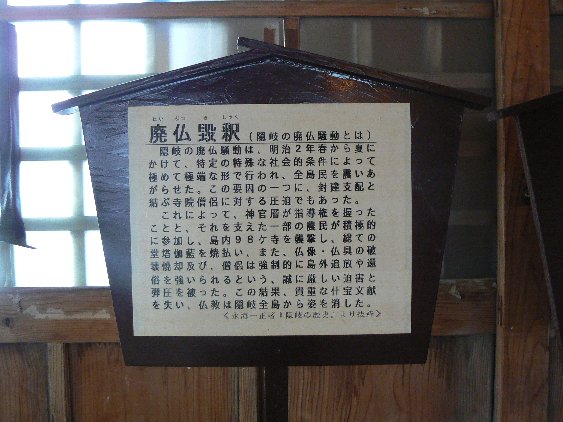 はい ぶつ き しゃく
廃仏毀釈(隠岐の廃仏騒動とは)
隠岐の廃仏騒動は、明治2年春から夏に
かけて、特定の特殊な社会的条件によって
極めて極端な形で行われ、全島民を震いあ
がらせた。この要因の一つに、封建支配と
結ぶ寺院僧侶に対する圧迫でもあった。
これによって、神官層が指導権を握った
ことと、それを支えた一部の農民が積極的
に参加し、島内98ケ寺を襲撃し、総ての
堂塔伽藍を焼払い、また、仏像・仏具の破
壊焼却及び、僧侶は強制的に島外追放や還
俗を強いられるという、誠に厳しい迫害と
弾圧を被った。この結果、貴重な什宝文献
を失い、仏教は隠岐全島から姿を消した。
《永海一正著「隠岐の歴史」より抜粋》